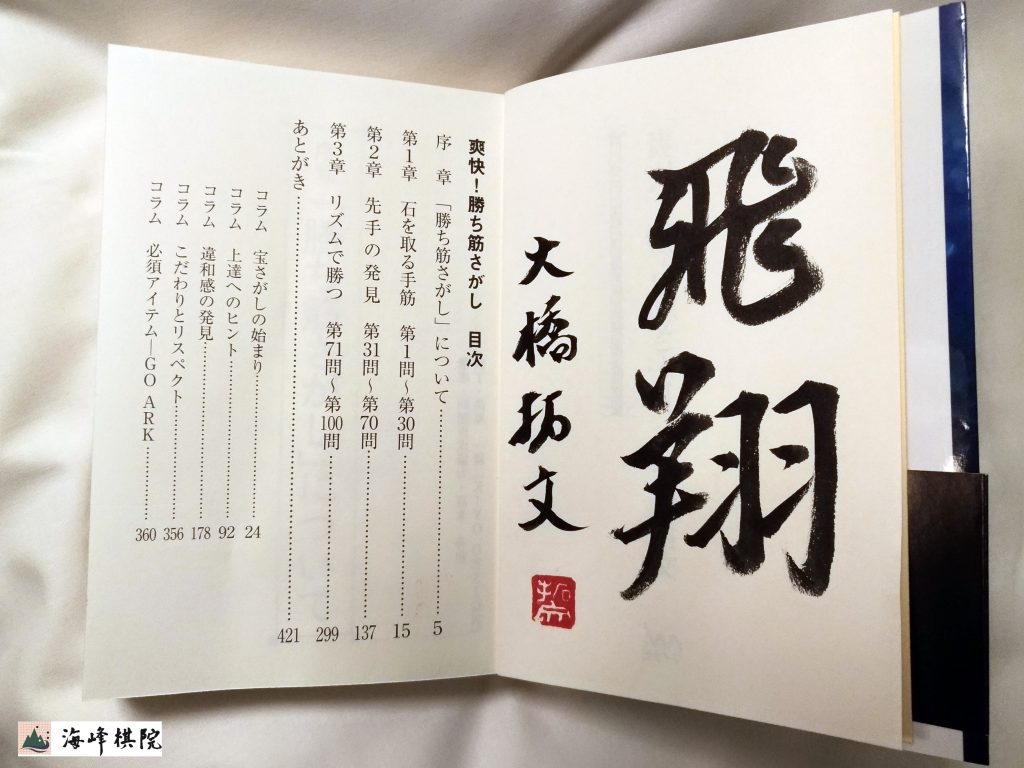 飛翔
大橋拓文
爽快！勝ち筋さがし　目次
序　章　「勝ち筋さがし」について……………5
第１章　石を取る手筋　第1問～第30問……………15
第２章　先手の発見　第31問～第70問……………137
第３章　リズムで勝つ　第71問～第100問……………299
あとがき……………421
コラム　宝さがしの始まり……………24
コラム　上達へのヒント……………92
コラム　違和感の発見……………178
コラム　こだわりとリスペクト……………356
コラム　必須アイテム―GO ARK……………360
海峰棋院